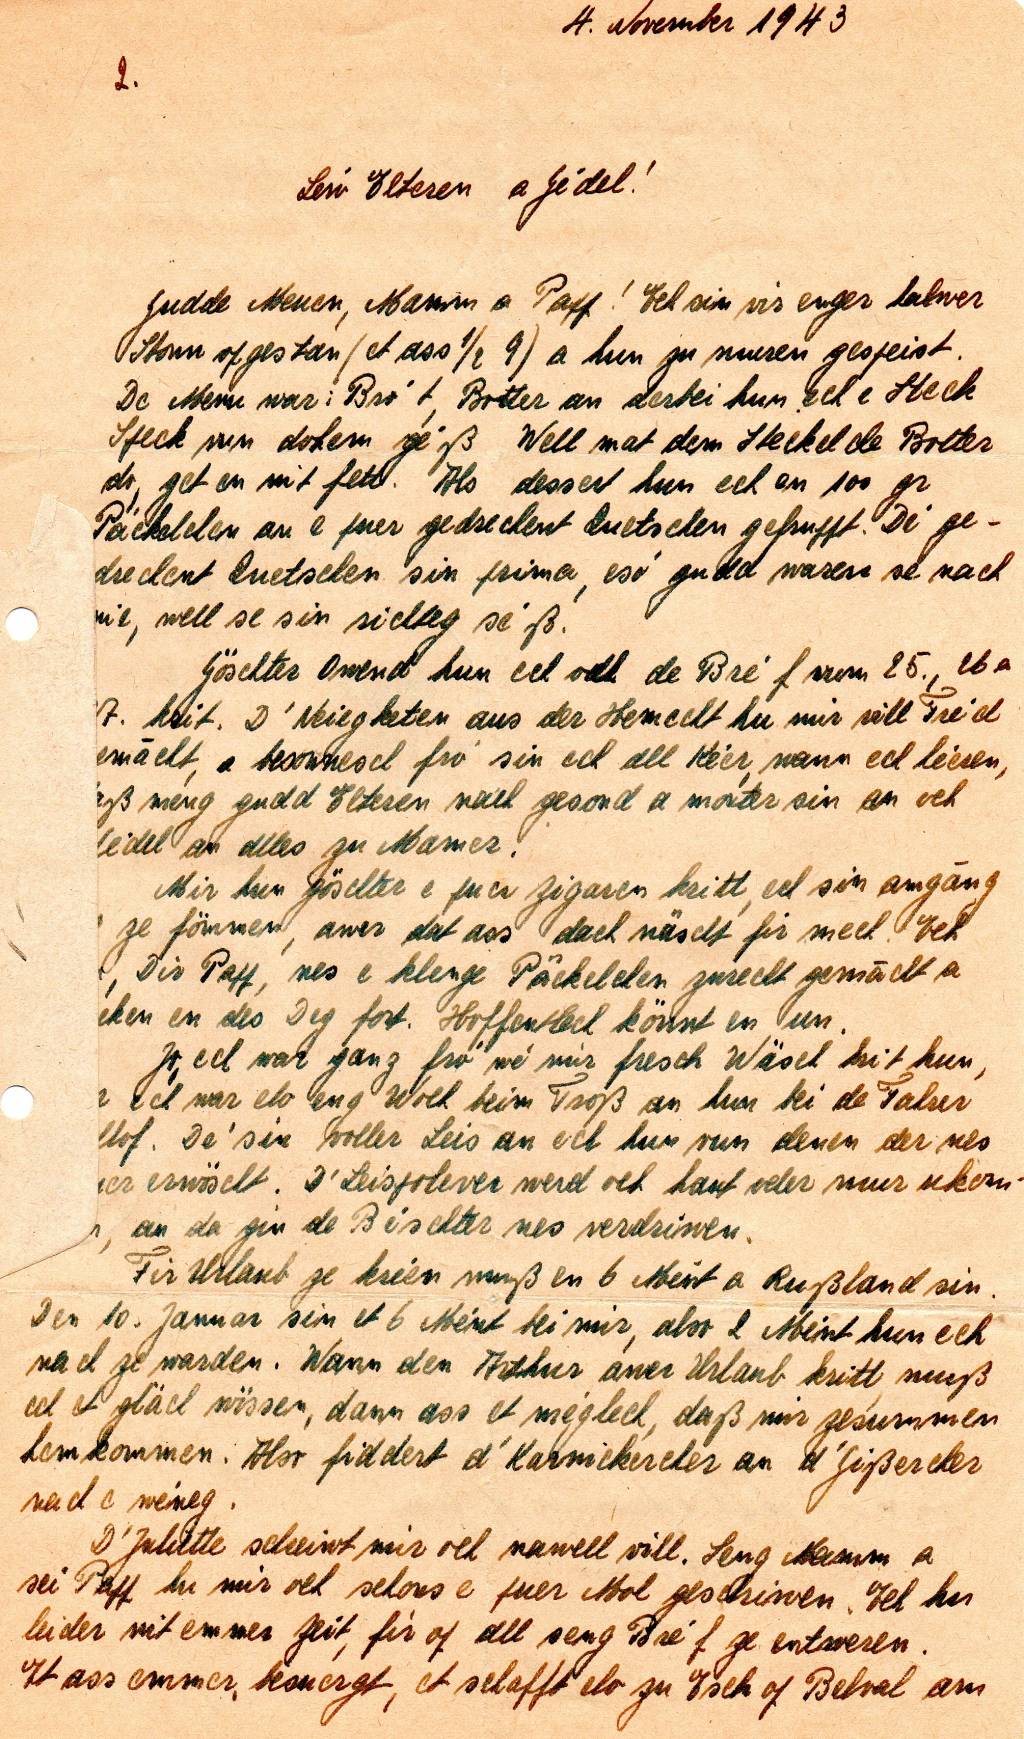 4. November 1943
2.
Leiw Elteren a Jédel!
Gudde Meuen, Mamm a Papp! Ech sin vir enger halwer
Stonn opgestan (et ass 1/2 9) a hun zu muren gespeist.
De Menu war: Bró't, Botter an derbei hun ech e Steck
Speck vun dohem gé ß Well mat dem Steckel de Botter
do, get en nit fett. Als dessert hun ech en 100 gr
Päckelchen an e puer gedrechent Quetschen gefrupft. Dé ge-
drechent Quetschen sin prima, esó gudd waren se nach
nie, well se sin richteg sé ß.
Göschter Owend hun ech och de Bré f vum 25., 26 a
7. krit. D'Neiegketen aus der Hemecht hu mir vill Fréd
emächt, a besonnesch fró sin ech all Kéer, wann ech liesen,
aß meng gudd Elteren nach gesond a monter sin an och
édel an alles zu Mamer.
Mir hun göschter e puer Zigaren kritt, ech sin amgäng
ze fömmen, awer dat ass dach näscht fir mech. Ech
, Dir Papp, nes e klenge Päckelchen zurecht gemächt a
cken en des Deg fort. Hoffentlech könnt en un.
Jo, ech war ganz fró wé mir fresch Wäsch krit hun,
r ech war elo eng Woch beim Troß an hun bei de Fahrer
hlof. Dé sin voller Leis an ech hun vun denen der nes
uer erwöscht. D'Leispolever werd och haut oder muer ukom-
n, an da gin de Béschter nes verdriwen.
Fir Urlaub ze kréien muß en 6 Méint a Rußland sin.
Den 10. Januar sin et 6 Méint bei mir, also 2 Méint hun ech
nach ze warden. Wann den Arthur awer Urlaub kritt, muß
ech et gläch wössen, dann ass et méglech, daß mir zesummen
hemkommen. Also fiddert d'Karnickelcher an d'Gißercher
nach e wéneg.
D'Juliette schreiwt mir och nawell vill. Seng Mamm a
sei Papp hu mir och schons e puer Mol geschriwen. Ech hu
leider nit emmer Zeit, fir op all seng Bré f ze entweren.
Et ass emmer besuergt, et schafft elo zu Esch op Belval am